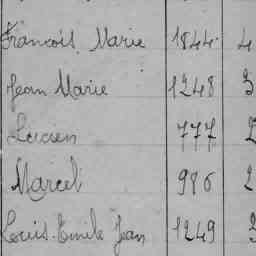 François Marie 1844 4
Jean Marie 1248 3
Lucien 777 2
Marcel 986 2
Louis Emile Jean 1249 3